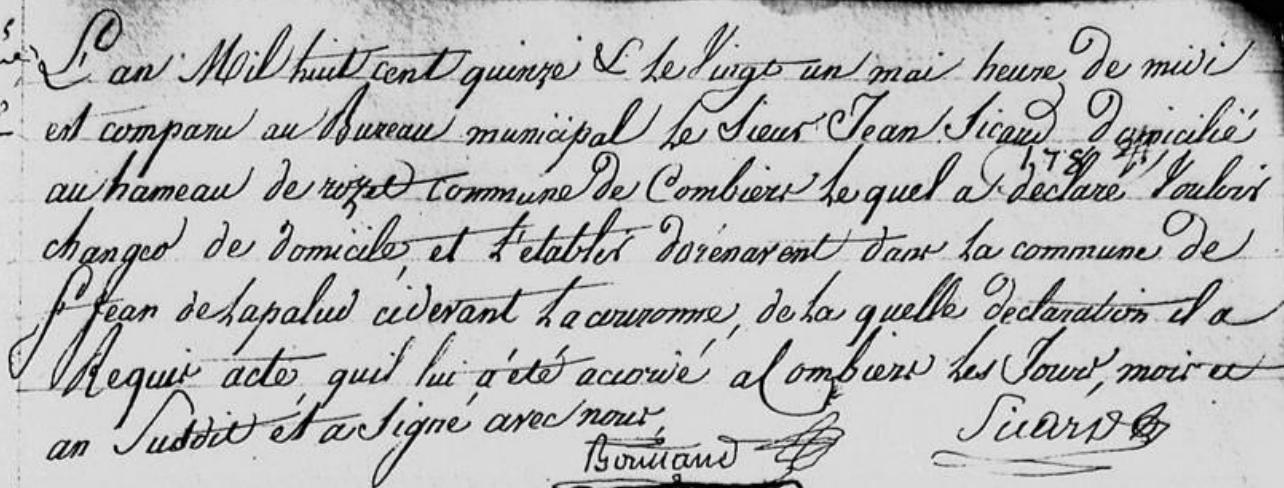 L'an Mil huit cent quinze & le Vingt un mai heure de midi
est comparu au Bureau municipal le sieur Jean Sicaud domicilié
au hameau de rozet commune de Combiers le quel a déclaré Vouloir
changer de domicile, et s'etablir dorénavent dans la commune de
St Jean de Lapalud cidevant Lacouronne, de la quelle declaration il a
Requis acte, quil lui a été accordé a Combiers les Jours, mois et
an Susdit et a Signé avec nous,
Sicard